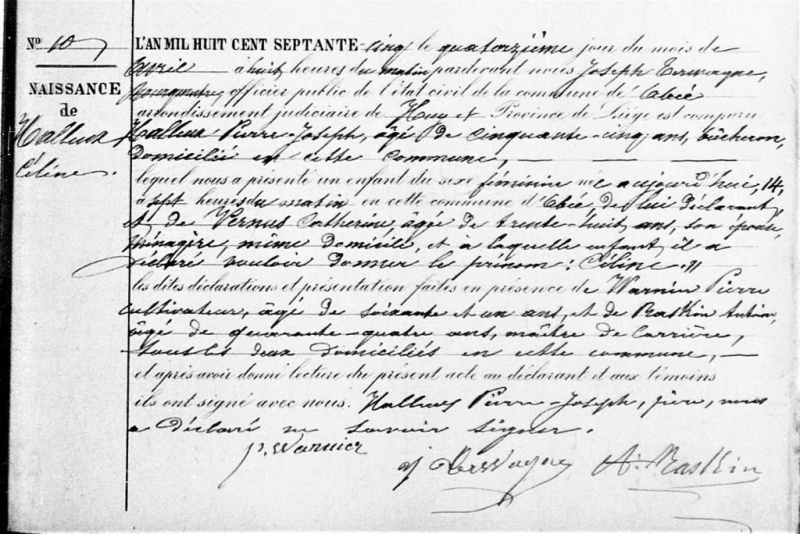 N° 10
NAISSANCE
de
Halleux
Céline.
L'AN MIL HUIT CENT SEPTANTE-cinq le quatorzième jour du mois de
Avril à huit heures du matin pardevant nous Joseph Terwagne,
Bourgmestre, officier public de l'état civil de la commune de Abée
arrondissement judiciaire de Huy et Province de Liége est comparu
Halleux Pierre-Joseph, âgé de cinquante-cinq ans, bûcheron,
domicilié en cette commune, —
lequel nous a présenté un enfant du sexe féminine né aujourd'hui, 14,
à sept heures du matin en cette commune d'Abée de lui déclarant,
et de Vernus Catherine, âgée de trente-huit ans, son épouse,
ménagère, même domicile, et à laquelle enfant il a
déclaré vouloir donner le prénom: Céline."
les dites déclarations et présentation faites en présence de Warnier Pierre
cultivateur, âgé de soixante et un ans, et de Raskin Antoine,
âgé de quarante-quatre ans, maître de carrière,
tous les deux domiciliés en cette commune, —
et après avoir donné lecture du présent acte au déclarant et aux témoins
ils ont signé avec nous. Halleux Pierre-Joseph, père, nous
a déclaré ne savoir signer.
p. Warnier
J Terwagne A. Raskin